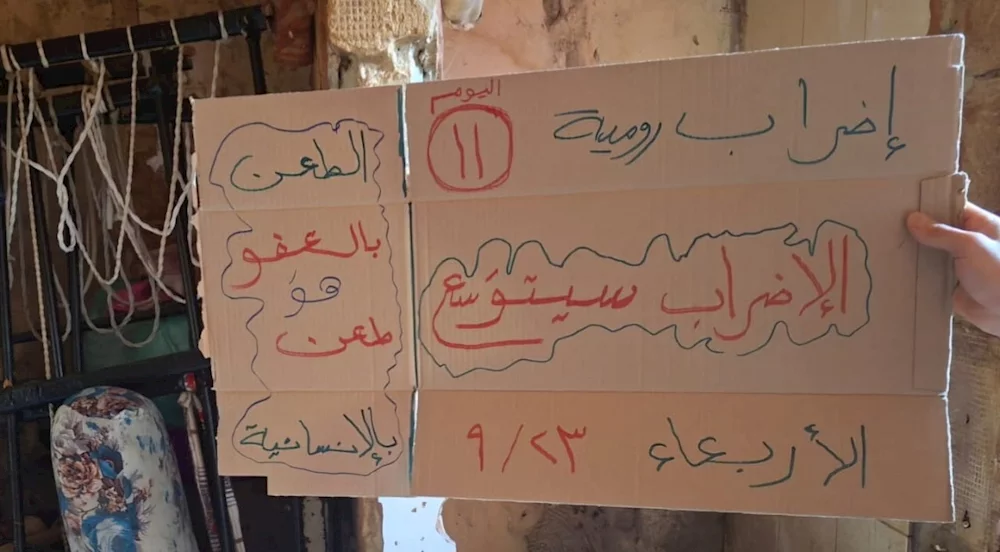 إضراب رومية
اليوم
١١
الإضراب سيتوَسع
الأربعاء ٩/٢٣
الطعن
بالعفو
هوَ
طعن
بالإنسانية